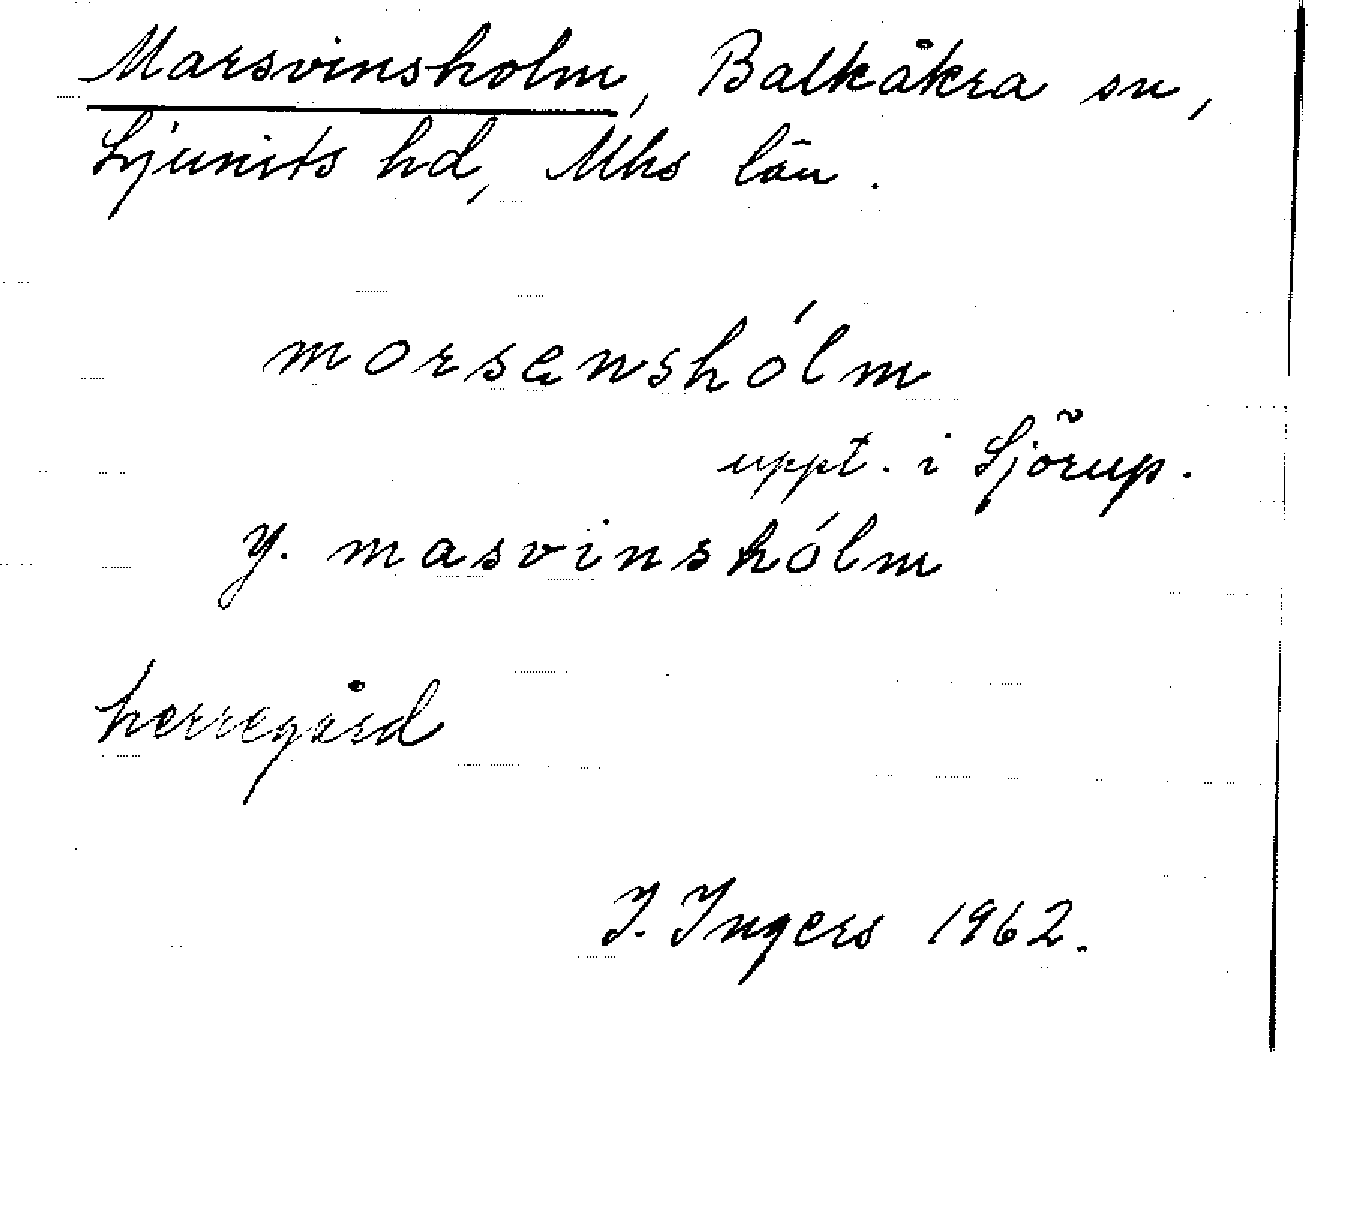 Marsvinsholm, Balkåkra sn,
Ljunits hd, Mhs län.
morsənshólm
uppt. i Sjörup.
y. masvinshólm
herregård
I. Ingers 1962.